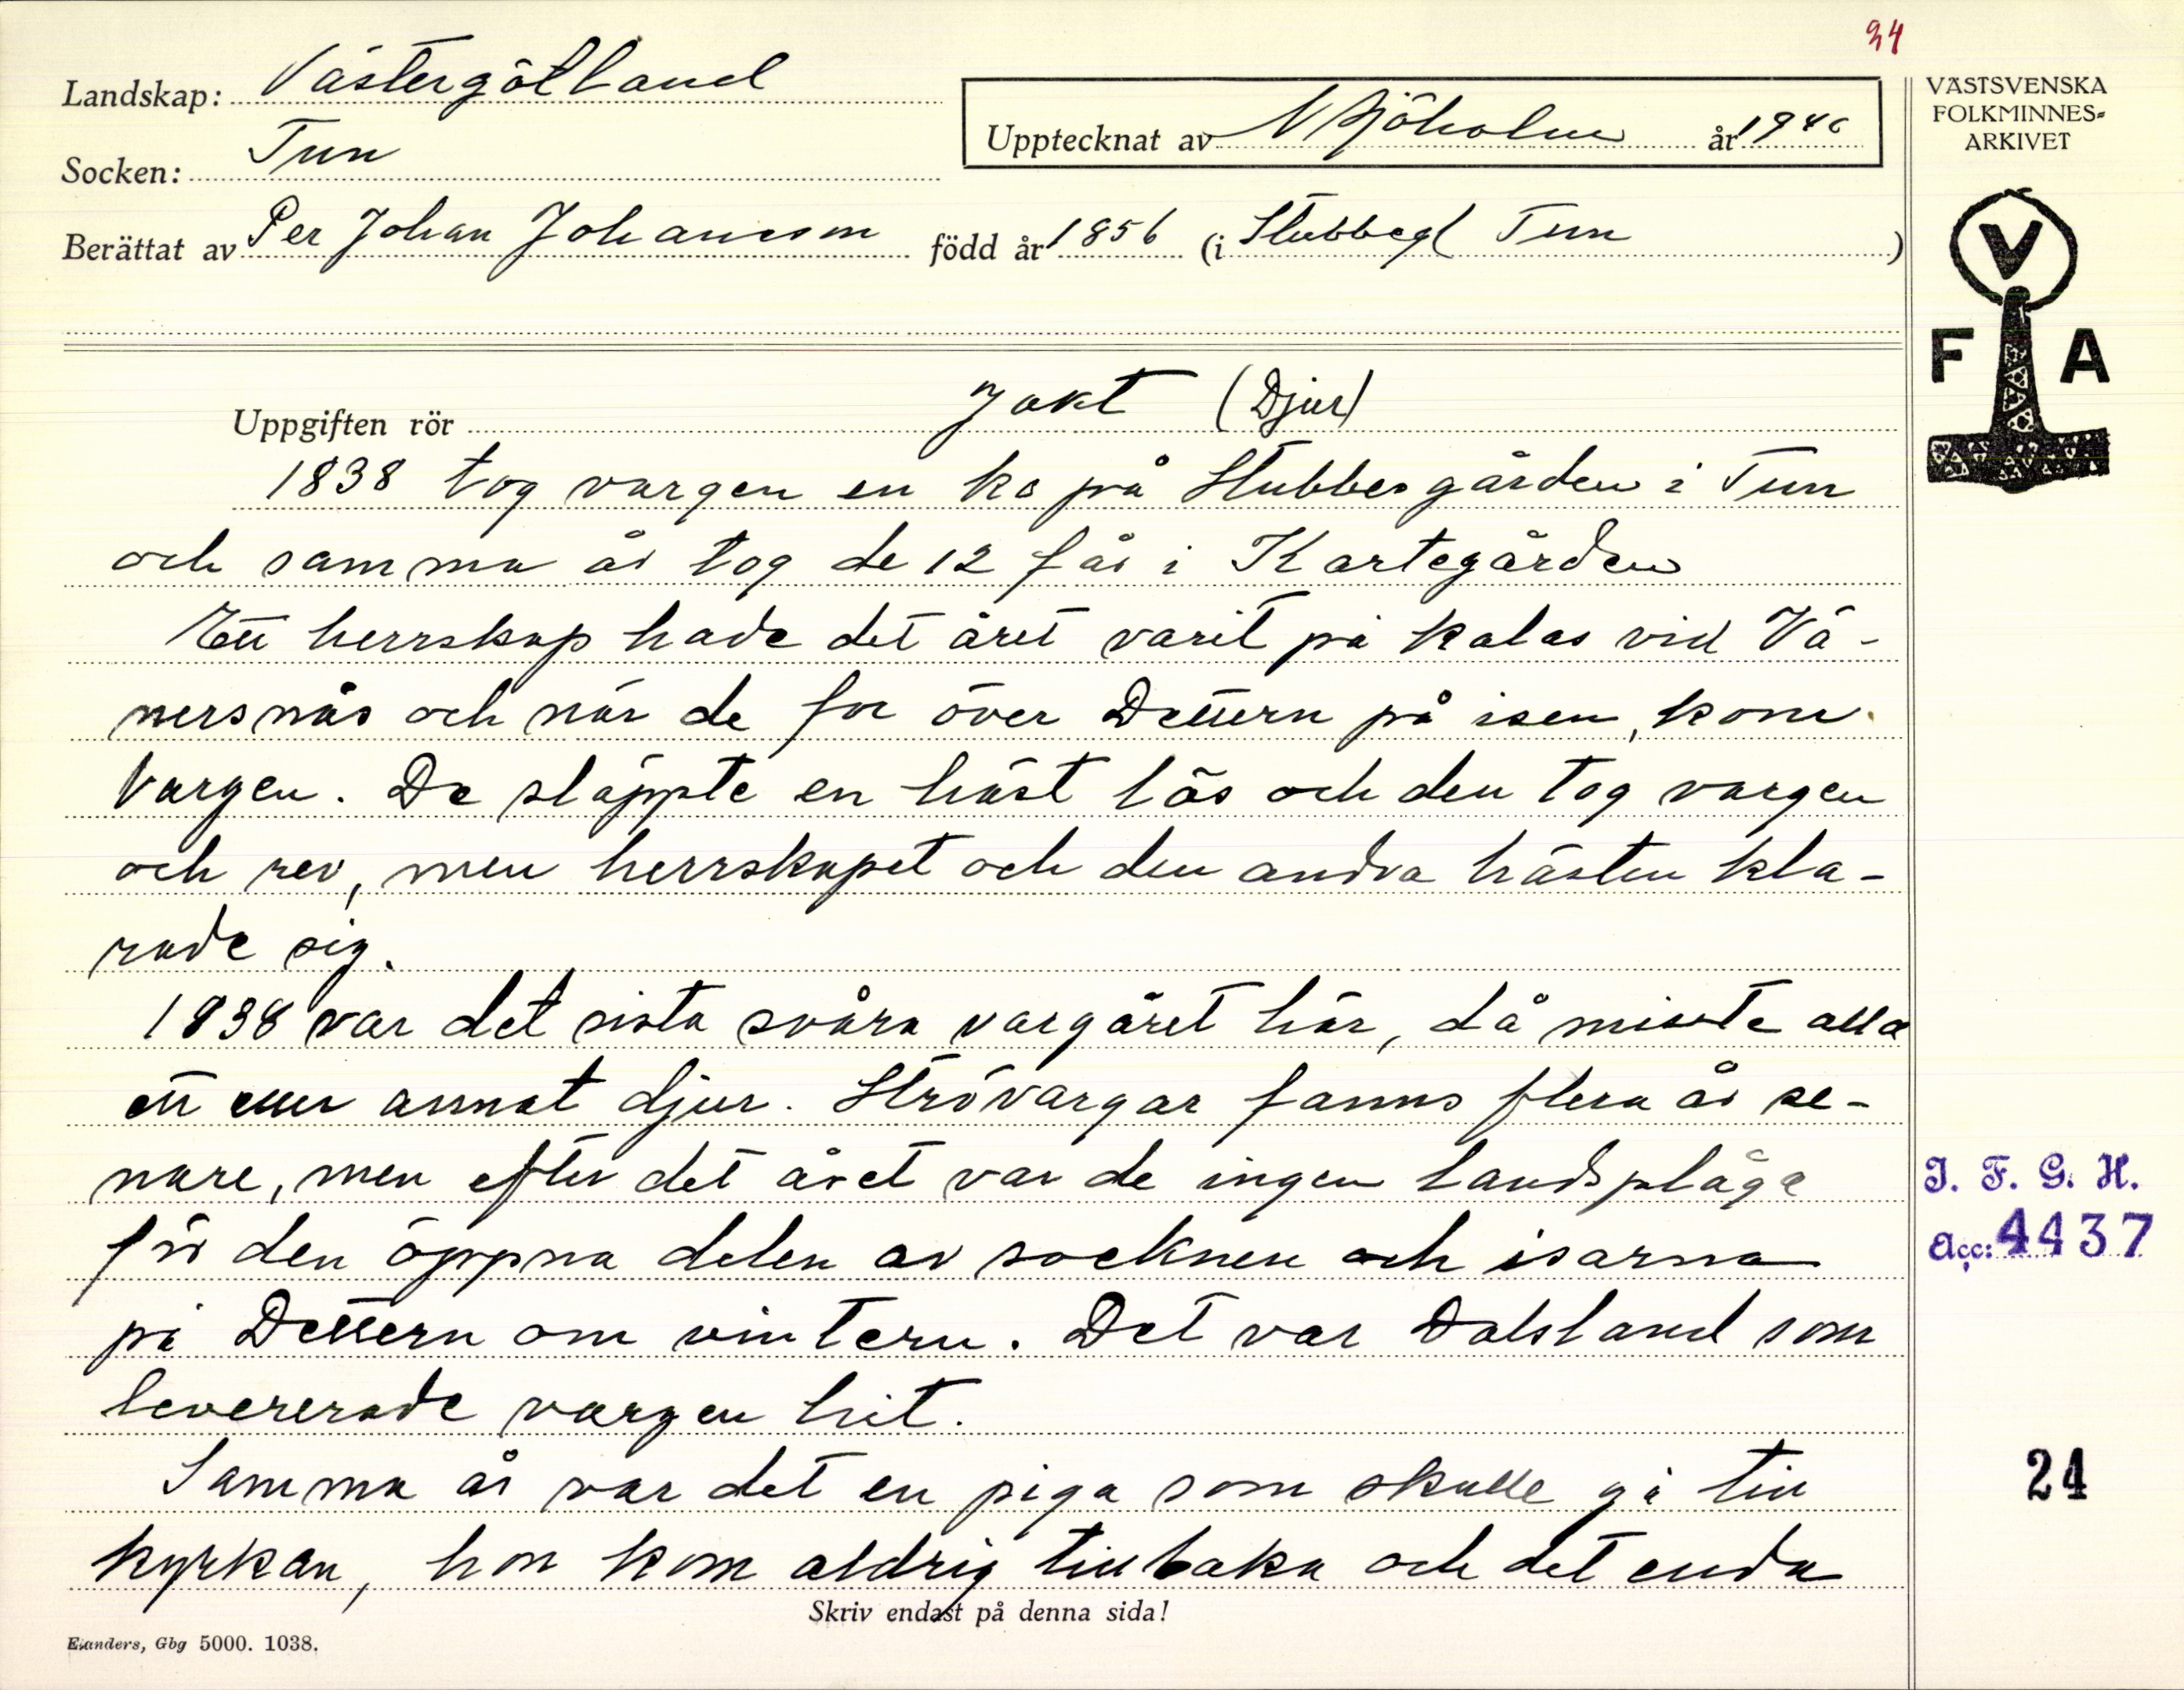 34
Landskap: Västergötland
Socken: Tun
Upptecknat av N Sjöholm år 1940
Berättat av Per Johan Johansson född år 1856 (i Stubbeg Tun)
VÄSTSVENSKA
FOLKMINNES-
ARKIVET
V
F A
Uppgiften rör Jakt (Djur)
1838 tog vargen en ko på Stubbesgården i Tun
och samma år tog de 12 får i Kartegården
Ett herrskap hade det året varit på kalas vid Vä-
nersnäs och när de for över Dettern på isen, kom
Vargen. De släppte en häst lös och den tog vargen
och rev, men herrskapet och den andra hästen kla-
rade sig.
1838 var det sista svåra vargåret här, då miste alla
ett eller annat djur. Strövargar fanns flera år se-
nare, men efter det året var de ingen landsplåga
för den öppna delen av socknen och isarna
på Dettern om vintern. Det var Dalsland som
levererade vargen hit.
Samma år var det en piga som skulle gå till
kyrkan, hon kom aldrig tillbaka och det enda
Skriv endast på denna sida!
Elanders, Gbg 5000. 1038.
I. F. G. H.
Acc: 4437
24